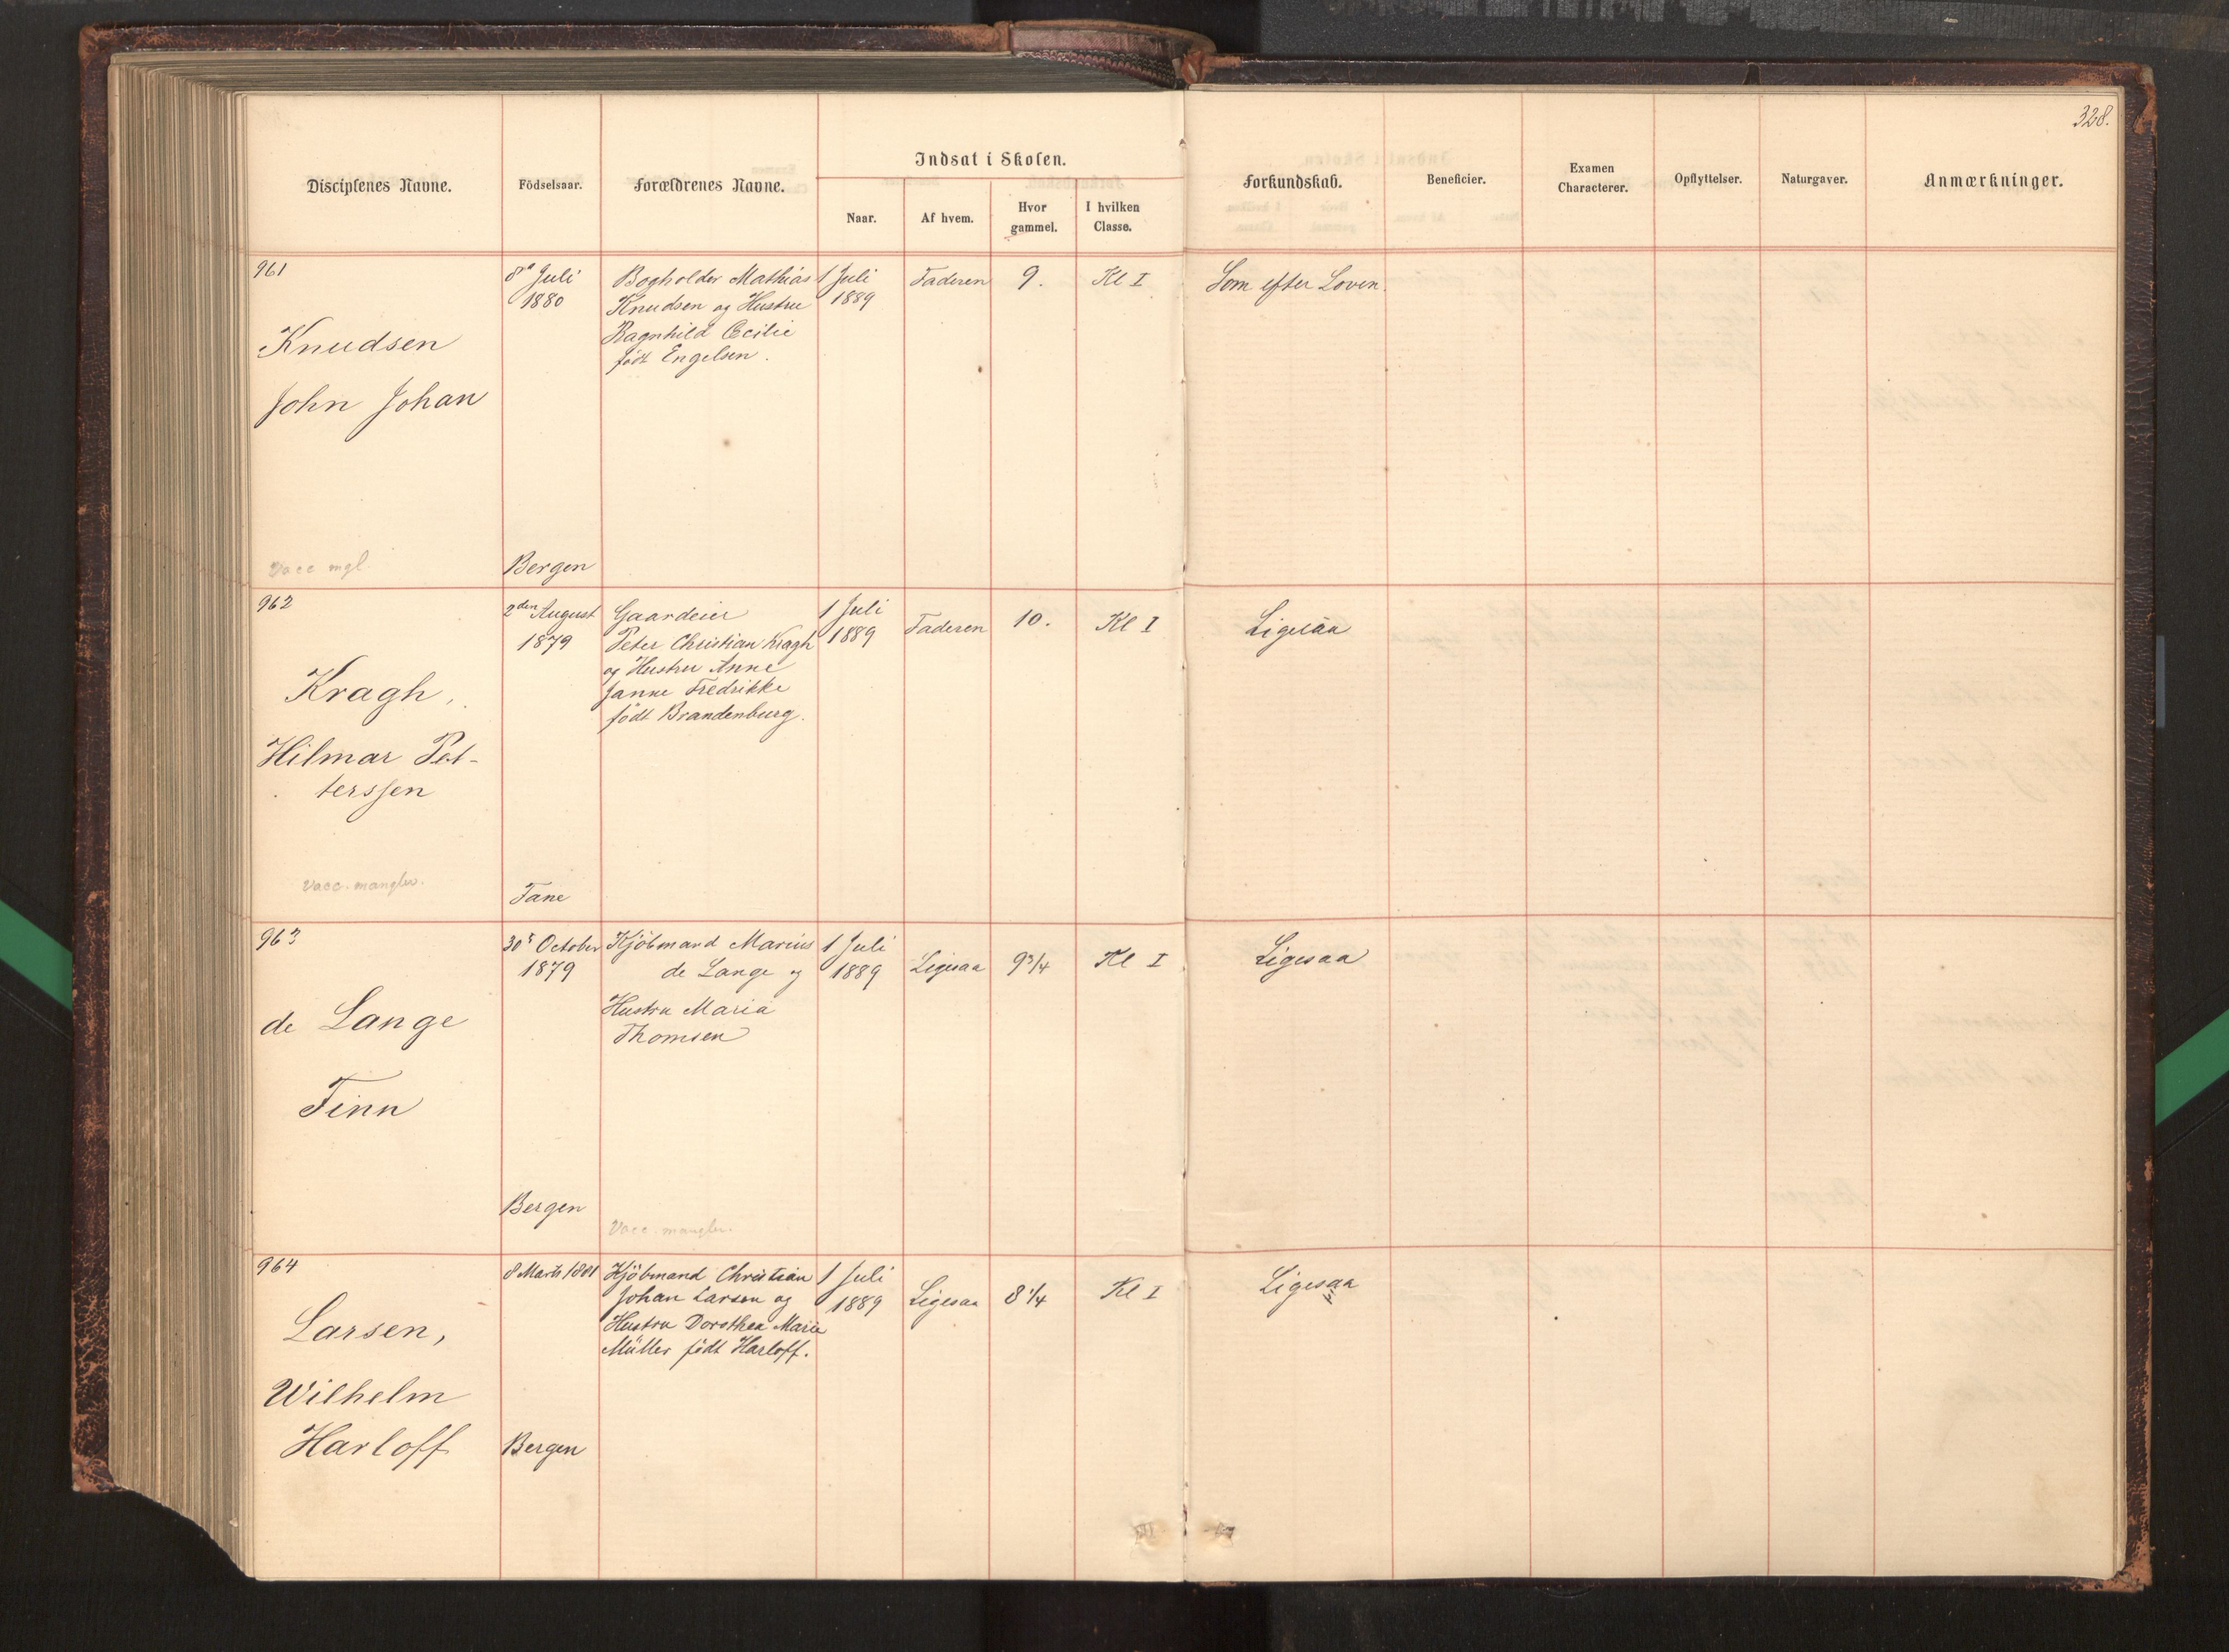 328.
Indsat i Skolen.
Disciplenes Navne.
Födselsaar.
Forældrenes Navne.
Naar.
Af hvem.
Hvor
gammel.
I hvilken
Classe.
Forkundskab.
Beneficier.
Examen
Characterer.
Opflyttelser.
Naturgaver.
Anmærkninger.
961
Knudsen
John Johan
Vacc mgl.
8de Juli
1880
Bergen
Bogholder Mathias
Knudsen og Hustru
Ragnhild Cecilie
født Engelsen.
1 Juli
1889
Faderen
9.
Kl I
Som efter Loven.
962
Kragh,
Hilmar Pet-
terssen
Vacc. mangler.
2den August
1879
Fane
Gaardeier
Peter Christian Kragh
og Hustru Anne
Janne Fredrikke
født Brandenburg.
1 Juli
1889
Faderen
10.
Kl I
Ligesaa
963
de Lange
Finn
30te October
1879
Bergen
Kjöbmand Marius
de Lange og
Hustru Maria
Thomsen
Vacc. mangler.
1 Juli
1889
Ligesaa
9 3/4
Kl I
Ligesaa
964
Larsen,
Wilhelm
Harloff
8 Marts 1881
Bergen
Kjöbmand Christian
Johan Larsen og
Hustru Dorothea Marie
Müller født Harloff.
1 Juli
1889
Ligesaa
8 1/4
Kl I
Ligesaa